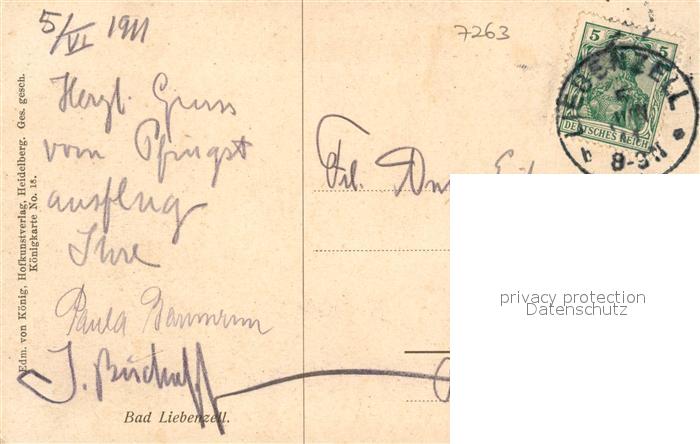 5/VI 1911
7263
Herzl. Gruss
vom Pfingst
ausflug
Ihre
Paula
J.
Bad Liebenzell.
Edm. von König, Hofkunstverlag, Heidelberg. Ges. gesch.
Königkarte No. 18.
Frl.
5 5
DEUTSCHES REICH
LIEBENZELL
8-9N
privacy protection
Datenschutz